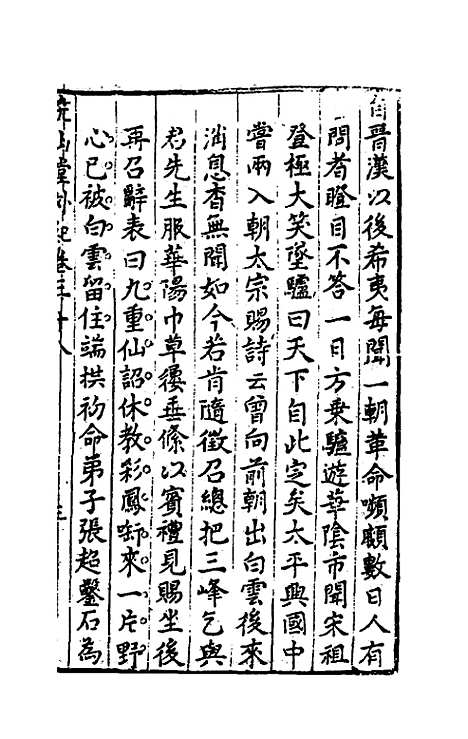 自晉漢以後希夷每聞一朝革命嚬顣數日人有
問者瞪目不答一日方乗驢遊華陰市聞宋祖
登極大笑墜驢曰天下自此定矣太平興國中
嘗兩入朝太宗賜詩云曾向前朝出白雲後來
消息杳無聞如今若肯隨徵召總把三峰乞與
君先生服華陽巾草屨垂絛以賓禮見賜坐後
再召辭表曰九重仙詔休教彩鳳啣來一片野
心已被白雲留住端拱初命弟子張超鑿石為
堂外紀卷三十八